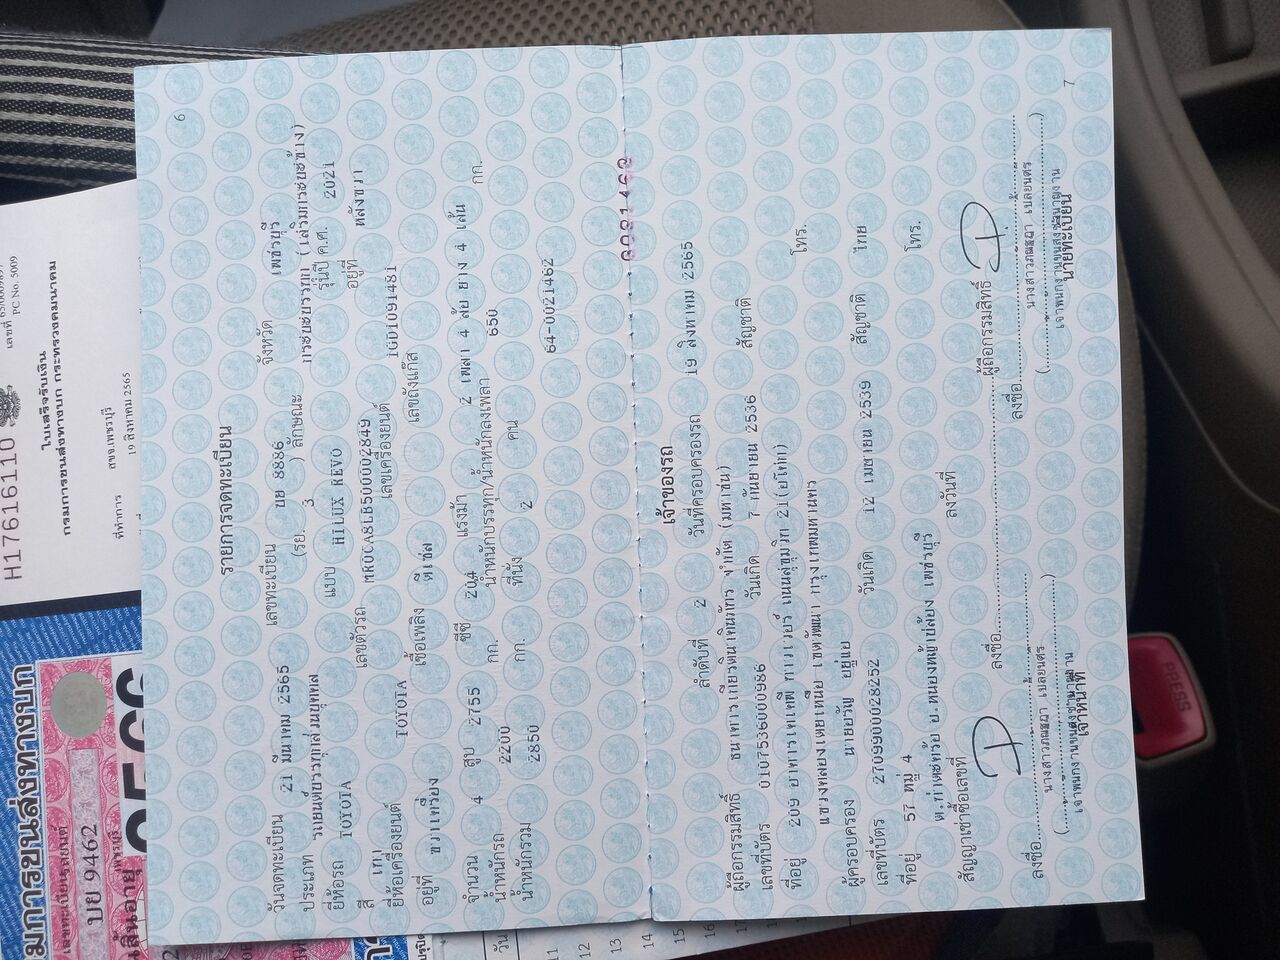 6
รายการจดทะเบียน
วันจดทะเบียน 21 มีนาคม 2565 เลขทะเบียน บย 8886 จังหวัด เพชรบุรี
ประเภท รถยนต์บรรทุกส่วนบุคคล (รย. 3 ) ลักษณะ กระบะบรรทุก (เสริมกระบะข้าง)
ยี่ห้อรถ TOYOTA แบบ HILUX REVO รุ่นปี ค.ศ. 2021
สี เทา เลขตัวรถ MR0CA8LB500002849 อยู่ที่ หลังขวา
ยี่ห้อเครื่องยนต์ TOYOTA เลขเครื่องยนต์ 1GD1091481
อยู่ที่ ขวาเครื่อง เชื้อเพลิง ดีเซล เลขถังแก๊ส
จำนวน 4 สูบ 2755 ซีซี 204 แรงม้า 2 เพลา 4 ล้อ ยาง 4 เส้น
น้ำหนักรถ 2200 กก. น้ำหนักบรรทุก/น้ำหนักลงเพลา 650 กก.
น้ำหนักรวม 2850 กก. ที่นั่ง 2 คน
64-0021462
เจ้าของรถ
ลำดับที่ 2 วันที่ครอบครองรถ 19 สิงหาคม 2565
ผู้ถือกรรมสิทธิ์ ธนาคารเกียรตินาคินภัทร จำกัด (มหาชน)
เลขที่บัตร 0107536000986 วันเกิด 7 กันยายน 2536 สัญชาติ
ที่อยู่ 209 อาคารเคเคพี ทาวเวอร์ ถนนสุขุมวิท 21(อโศก)
แขวงคลองเตยเหนือ เขตวัฒนา กรุงเทพมหานคร โทร.
ผู้ครอบครอง นายอรัญ อยู่แย
เลขที่บัตร 2709900028252 วันเกิด 12 เมษายน 2539 สัญชาติ ไทย
ที่อยู่ 57 หมู่ 4
ต. อ.หนองหญ้าปล้อง เพชรบุรี โทร.
สัญญาเช่าซื้อเลขที่ ลงวันที่
ลงชื่อ ผู้ถือกรรมสิทธิ์
ลงชื่อ ลงชื่อ
เจ้าหน้าที่ นายทะเบียน
7
H17616110
เลขที่
PC No. 5009
ใบเสร็จรับเงิน
กรมการขนส่งทางบก กระทรวงคมนาคม
ที่ทำการ สขจ.เพชรบุรี
19 สิงหาคม 2565
มการขนส่งทางบก
เลขทะเบียน
บย 9462
เพชรบุรี
สิ้นอายุ
วัน
11
12
13
14
15
16
17
PRESS